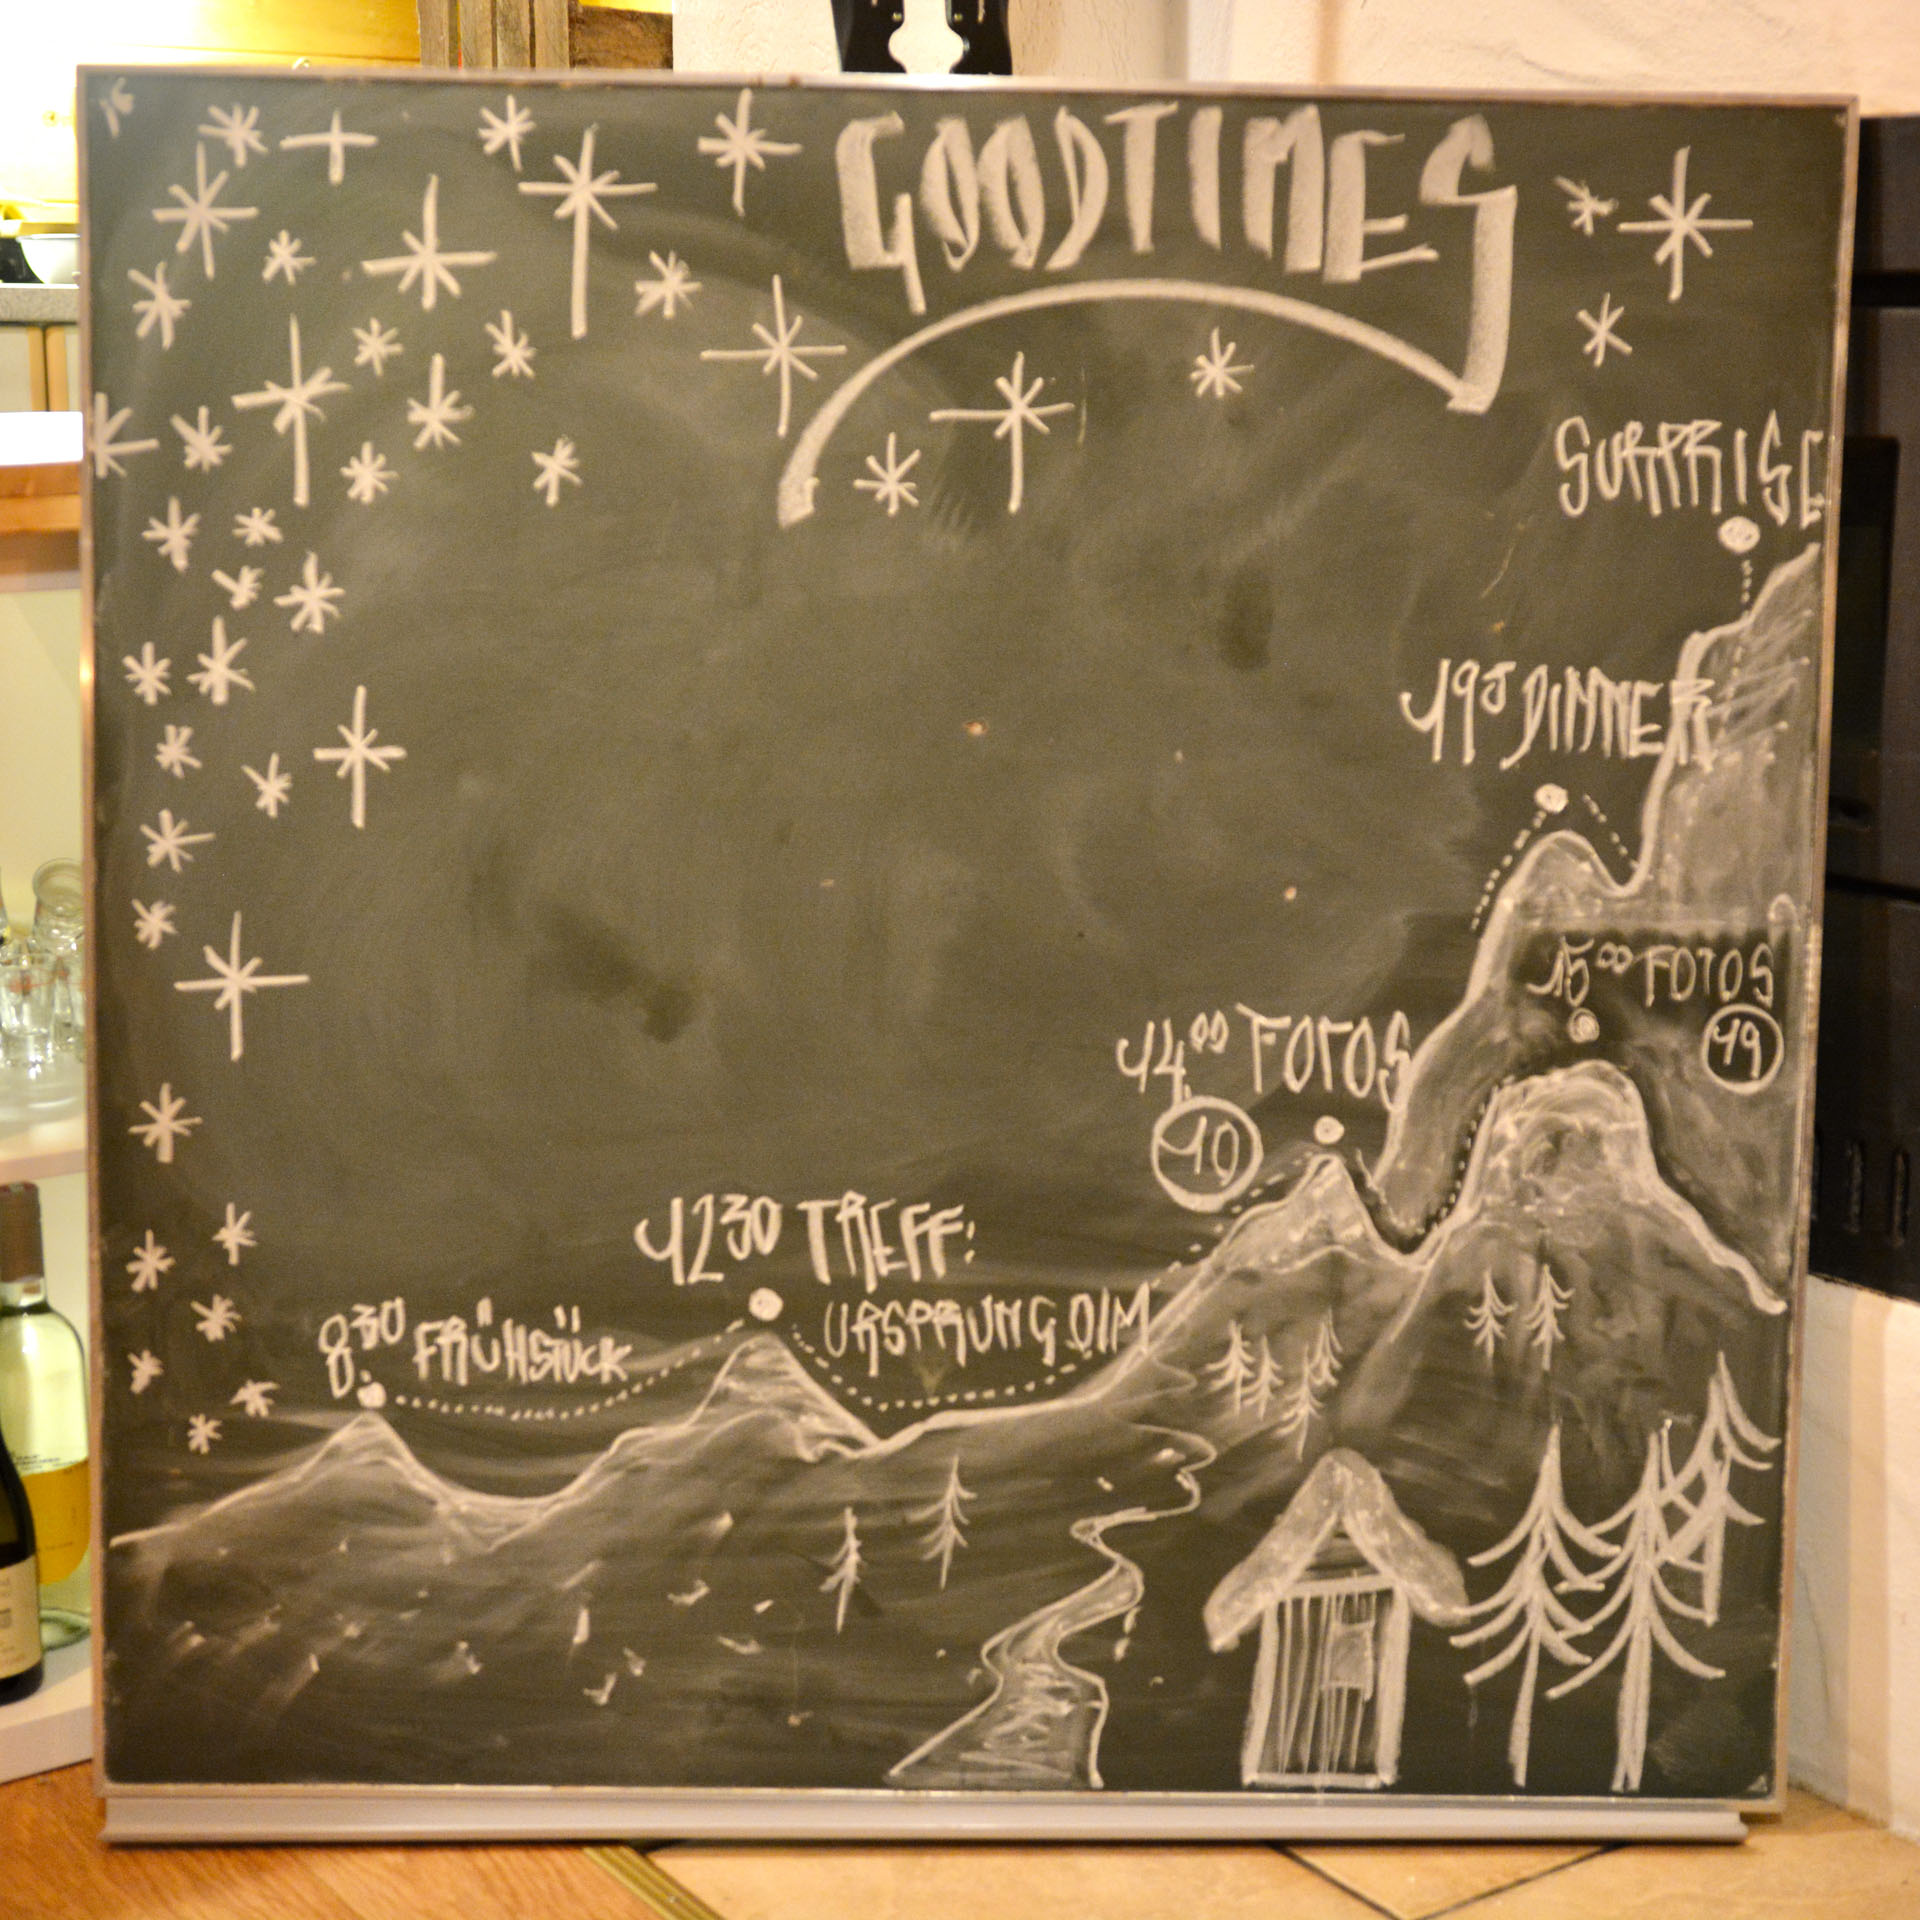 GOODTIMES
SURPRISE
19⁰ DINNER
15⁰⁰ FOTOS
19
14⁰⁰ FOTOS
10
12³⁰ TREFF:
URSPRUNG DIM
8³⁰ FRÜHSTÜCK